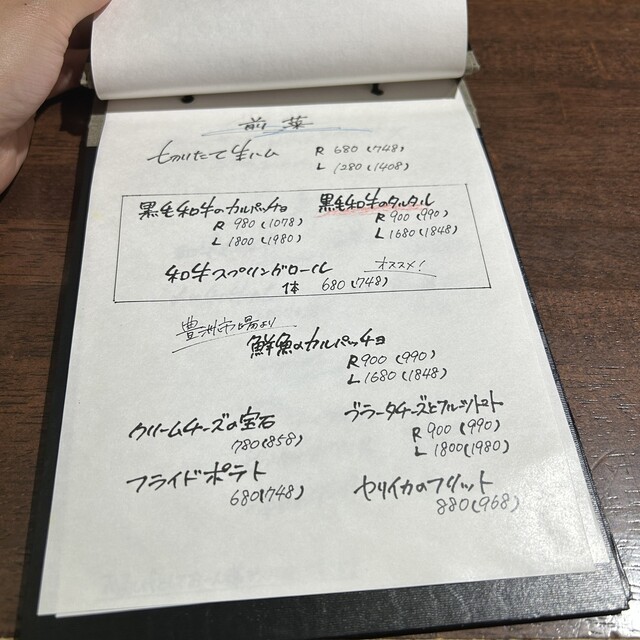 前菜
切りたて生ハム R 680 (748)
L 1280 (1408)
黒毛和牛のカルパッチョ
R 980 (1078)
L 1800 (1980)
黒毛和牛のタルタル
R 900 (990)
L 1680 (1848)
和牛スプリングロール
1本 680 (748)
オススメ!
豊洲市場より
鮮魚のカルパッチョ
R 900 (990)
L 1680 (1848)
クリームチーズの宝石
780 (858)
ブラータチーズとフルーツトマト
R 900 (990)
L 1800 (1980)
フライドポテト
680 (748)
ヤリイカのフリット
880 (968)